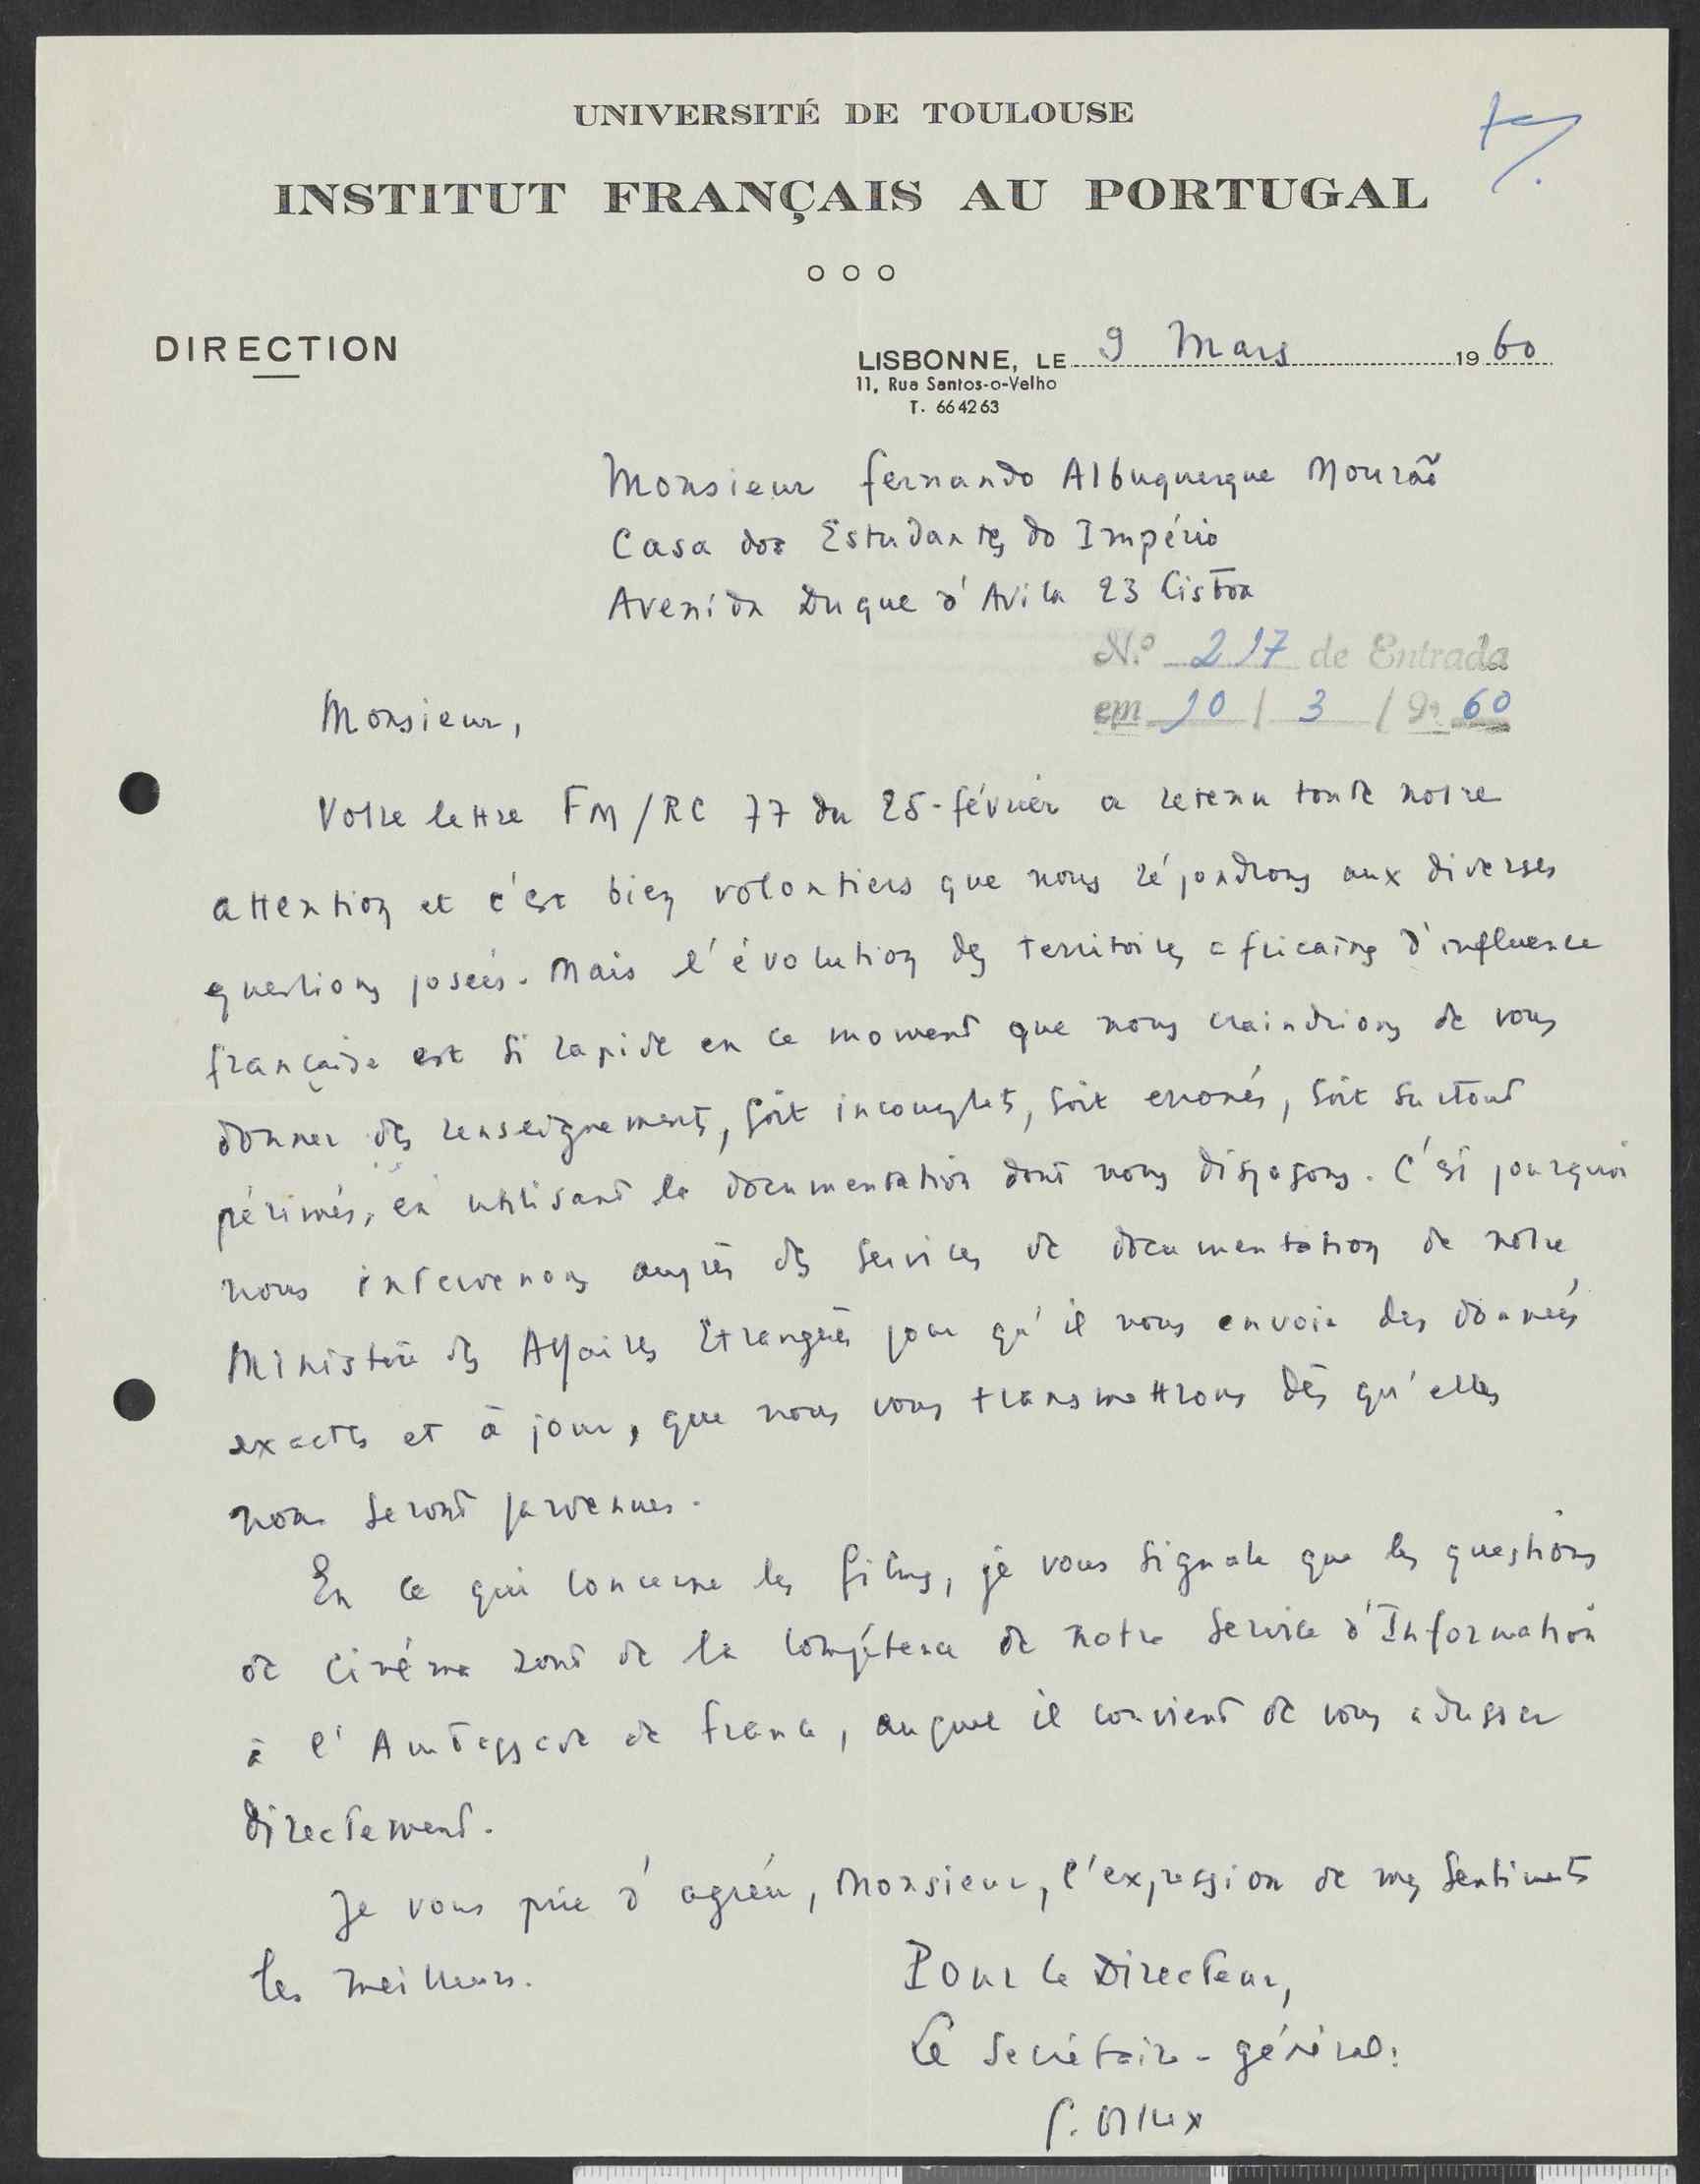 UNIVERSITÉ DE TOULOUSE
INSTITUT FRANÇAIS AU PORTUGAL
o o o
DIRECTION
LISBONNE, LE 9 Mars 1960
11, Rua Santos-o-Velho
T. 66 42 63
Monsieur Fernando Albuquerque Mourão
Casa dos Estudantes do Império
Avenida Duque d'Avila 23 Lisboa
N.º 217 de Entrada
em 10 / 3 / 60
Monsieur,
Votre lettre FM/RC 77 du 25-février a retenu toute notre
attention et c'est bien volontiers que nous répondrons aux diverses
questions posées. Mais l'évolution des territoires africains d'influence
française est si rapide en ce moment que nous craindrions de vous
donner des renseignements, soit incomplets, soit erronés, soit surtout
périmés, en utilisant la documentation dont nous disposons. C'est pourquoi
nous intervenons auprès des services de documentation de notre
Ministère des Affaires Etrangères pour qu'il nous envoie des données
exactes et à jour, que nous vous transmettrons dès qu'elles
nous seront parvenues.
En ce qui concerne les films, je vous signale que les questions
de cinéma sont de la compétence de notre Service d'Information
à l'Ambassade de France, auquel il convient de vous adresser
directement.
Je vous prie d'agréer, Monsieur, l'expression de mes sentiments
les meilleurs.
Pour le Directeur,
Le Secrétaire-général: